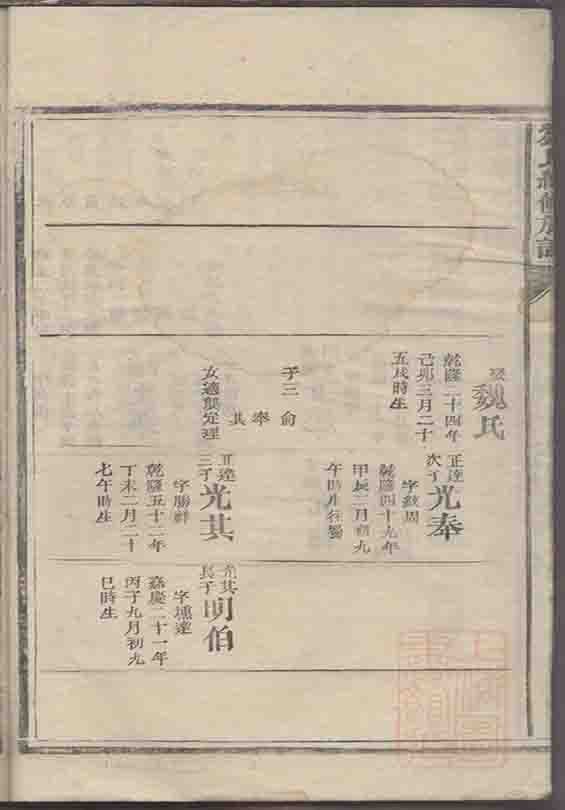 氏續修族譜
娶
魏氏
乾隆二十四年
己卯三月二十
五戌時生
子三 俞
奉
其
女適龔定理
正達
次子
光奉
字紋周
乾隆四十九年
甲辰二月初九
午時生往蜀
正達
三子
光其
字勝祥
乾隆五十二年
丁未二月二十
七午時生
光其
長子
明伯
字壎達
嘉慶二十一年
丙子九月初九
巳時生